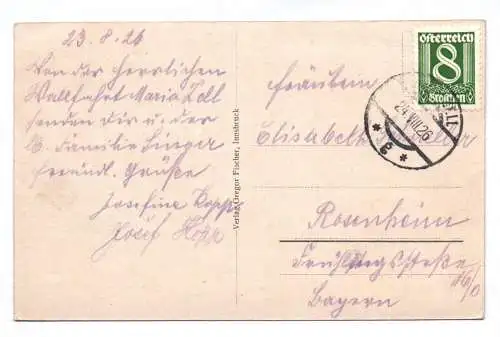 23.8.26
Von der herrlichen
Wallfahrt Maria Zell
senden Dir u. der
lb. Familie Singer
freundl. Grüße
Josefine Kopp
Josef Kopp
Verlag Gregor Fischer, Innsbruck
Österreich
8
Groschen
24.VIII.26
* e *
Fräulein
Elisabeth
Rosenheim
Frühlingsstraße
Bayern